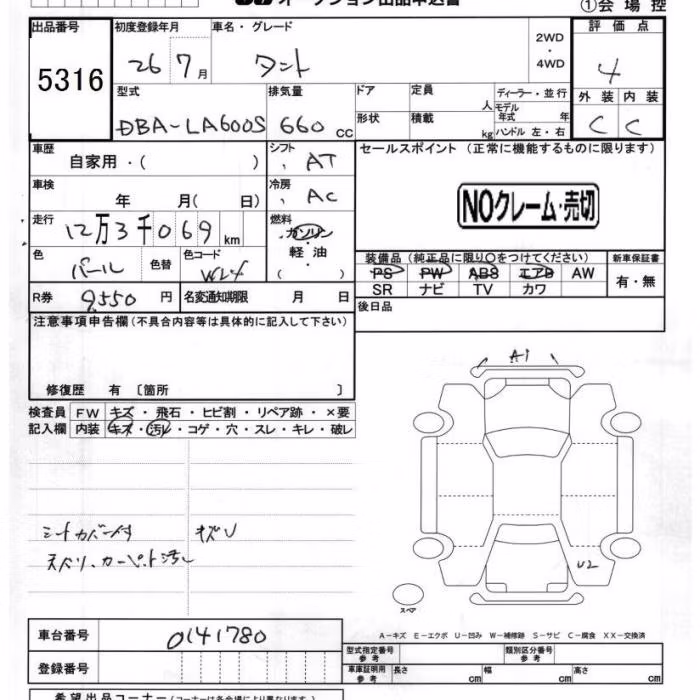 オークション出品申込書
①会場控
出品番号
5316
初度登録年月
26 7月
車名・グレード
タント
2WD
・
4WD
評価点
4
型式
DBA-LA600S
排気量
660 cc
ドア
定員
人
ディーラー・並行
モデル年式 年
形状
積載
kg
ハンドル 左・右
外装 内装
C C
車歴
自家用・( )
シフト
AT
セールスポイント (正常に機能するものに限ります)
車検
年 月( 日)
冷房
AC
NOクレーム・売切
走行
12万3千069km
燃料
ガソリン
軽・油
( )
色
パール
色替
色コード
W24
装備品 (純正品に限り○をつけてください)
新車保証書
PS PW ABS エアB AW
SR ナビ TV カワ
有・無
R券
9,550円
名変通知期限 月 日
後日品
注意事項申告欄(不具合内容等は具体的に記入して下さい)
修復歴 有 〔箇所 〕
検査員 FW キズ・飛石・ヒビ割・リペア跡・×要
記入欄 内装 キズ・汚レ・コゲ・穴・スレ・キレ・破レ
A1
シートカバー付 キズU
天バリ、カーペット汚レ
U2
スペア
A−キズ E−エクボ U−凹み W−補修跡 S−サビ C−腐食 XX−交換済
車台番号
0141780
型式指定番号
参考
類別区分番号
参考
登録番号
車庫証明用
参考
長さ cm
幅 cm
高さ cm
希望出品コーナー(コーナーは各会場により異なります)